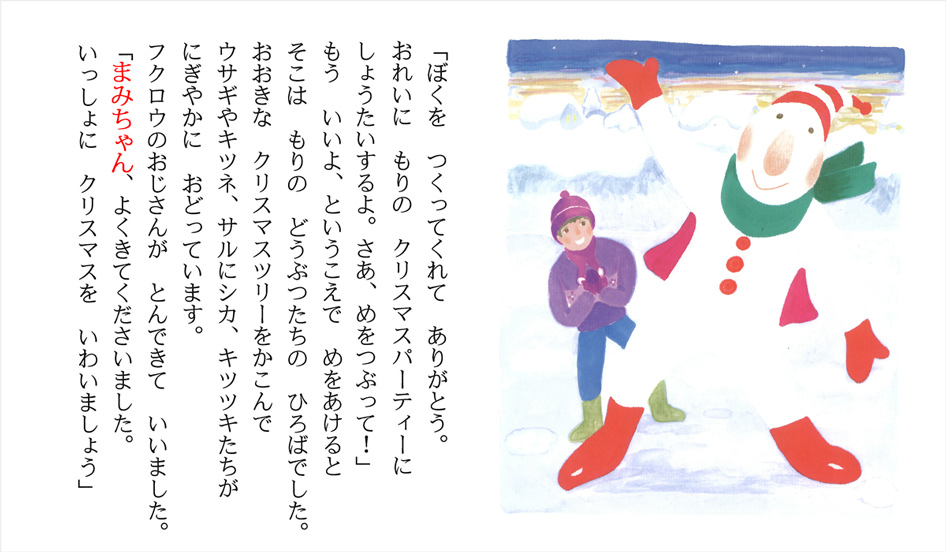 「ぼくを　つくってくれて　ありがとう。
おれいに　もりの　クリスマスパーティーに
しょうたいするよ。さあ、めをつぶって！」
もう　いいよ、というこえで　めをあけると
そこは　もりの　どうぶつたちの　ひろばでした。
おおきな　クリスマスツリーをかこんで
ウサギやキツネ、サルにシカ、キツツキたちが
にぎやかに　おどっています。
フクロウのおじさんが　とんできて　いいました。
「まみちゃん、よくきてくださいました。
いっしょに　クリスマスを　いわいましょう」